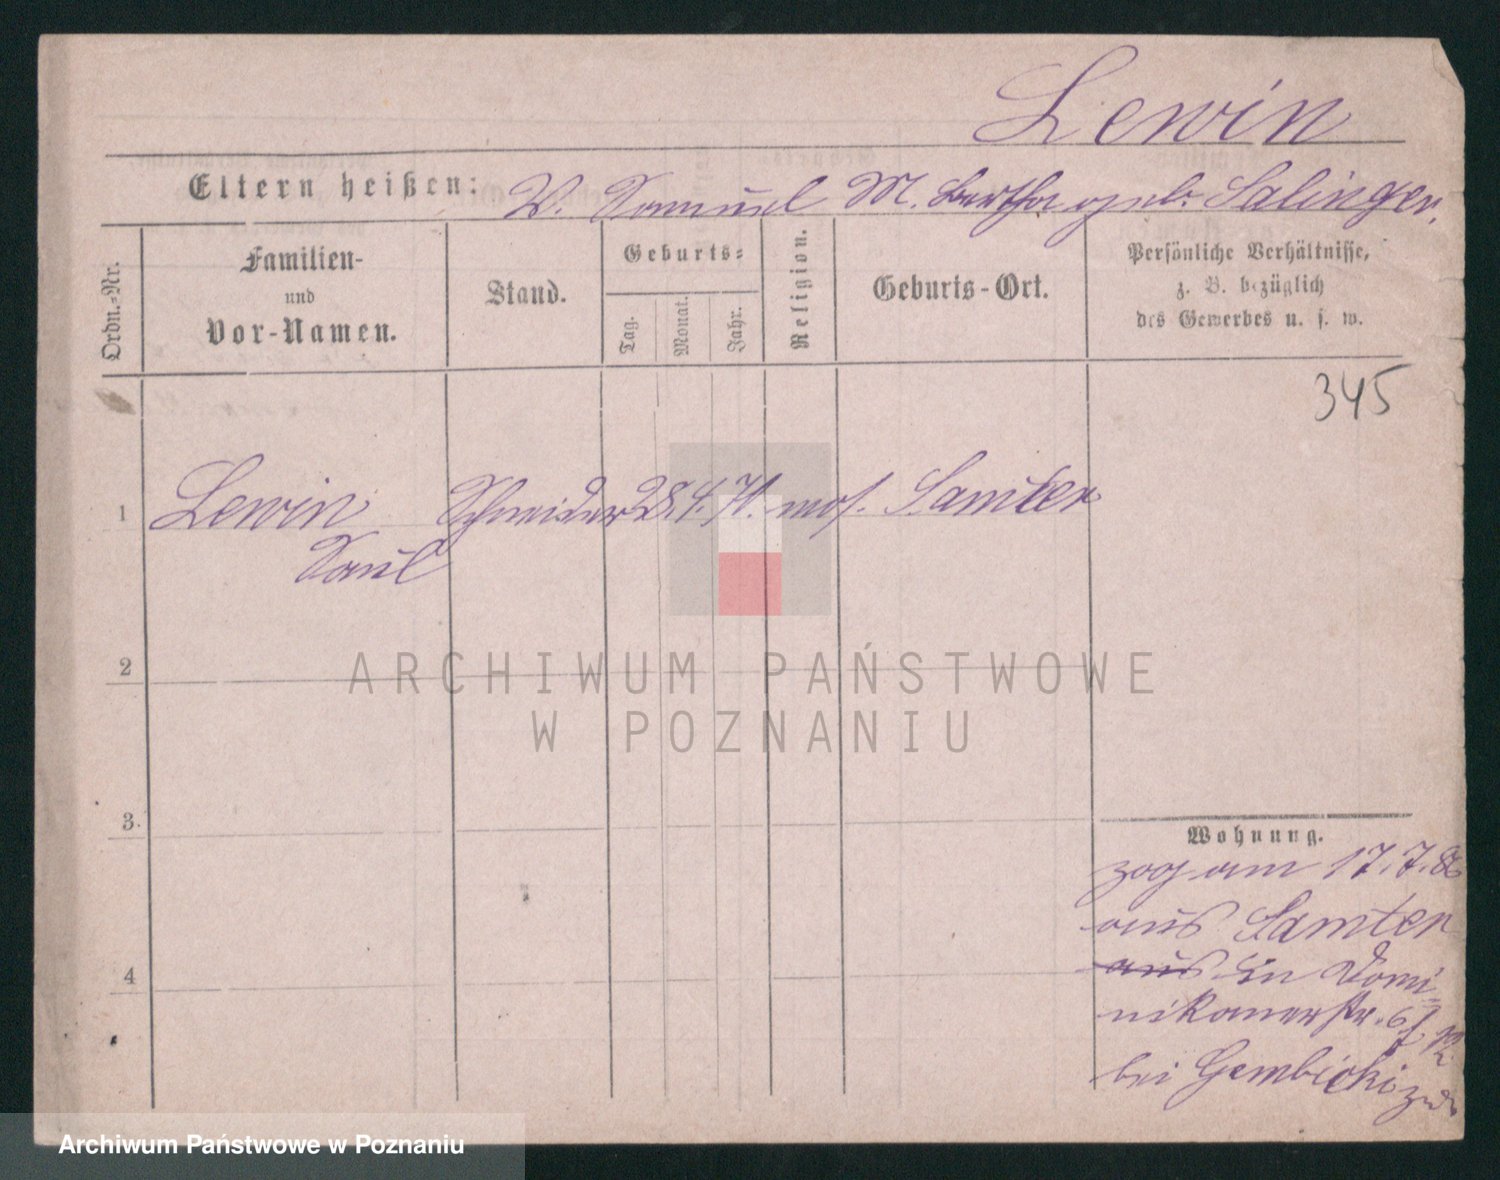 Lewin
Eltern heißen: V. Samuel M. Bertha geb. Salinger.
Ordn.-Nr.
Familien-
und
Vor-Namen.
Stand.
Geburts-
Tag.
Monat.
Jahr.
Religion.
Geburts-Ort.
Persönliche Verhältnisse,
z. B. bezüglich
des Gewerbes u. s. w.
345
1 Lewin Schneider 28. 4. 71. mos. Samter
Saul
ARCHIWUM PAŃSTWOWE
W POZNANIU
2
3.
4
Wohnung.
zog am 17.7.86
aus Samter
aus in Domi-
nikanerstr. 6
bei Gembicki
Archiwum Państwowe w Poznaniu